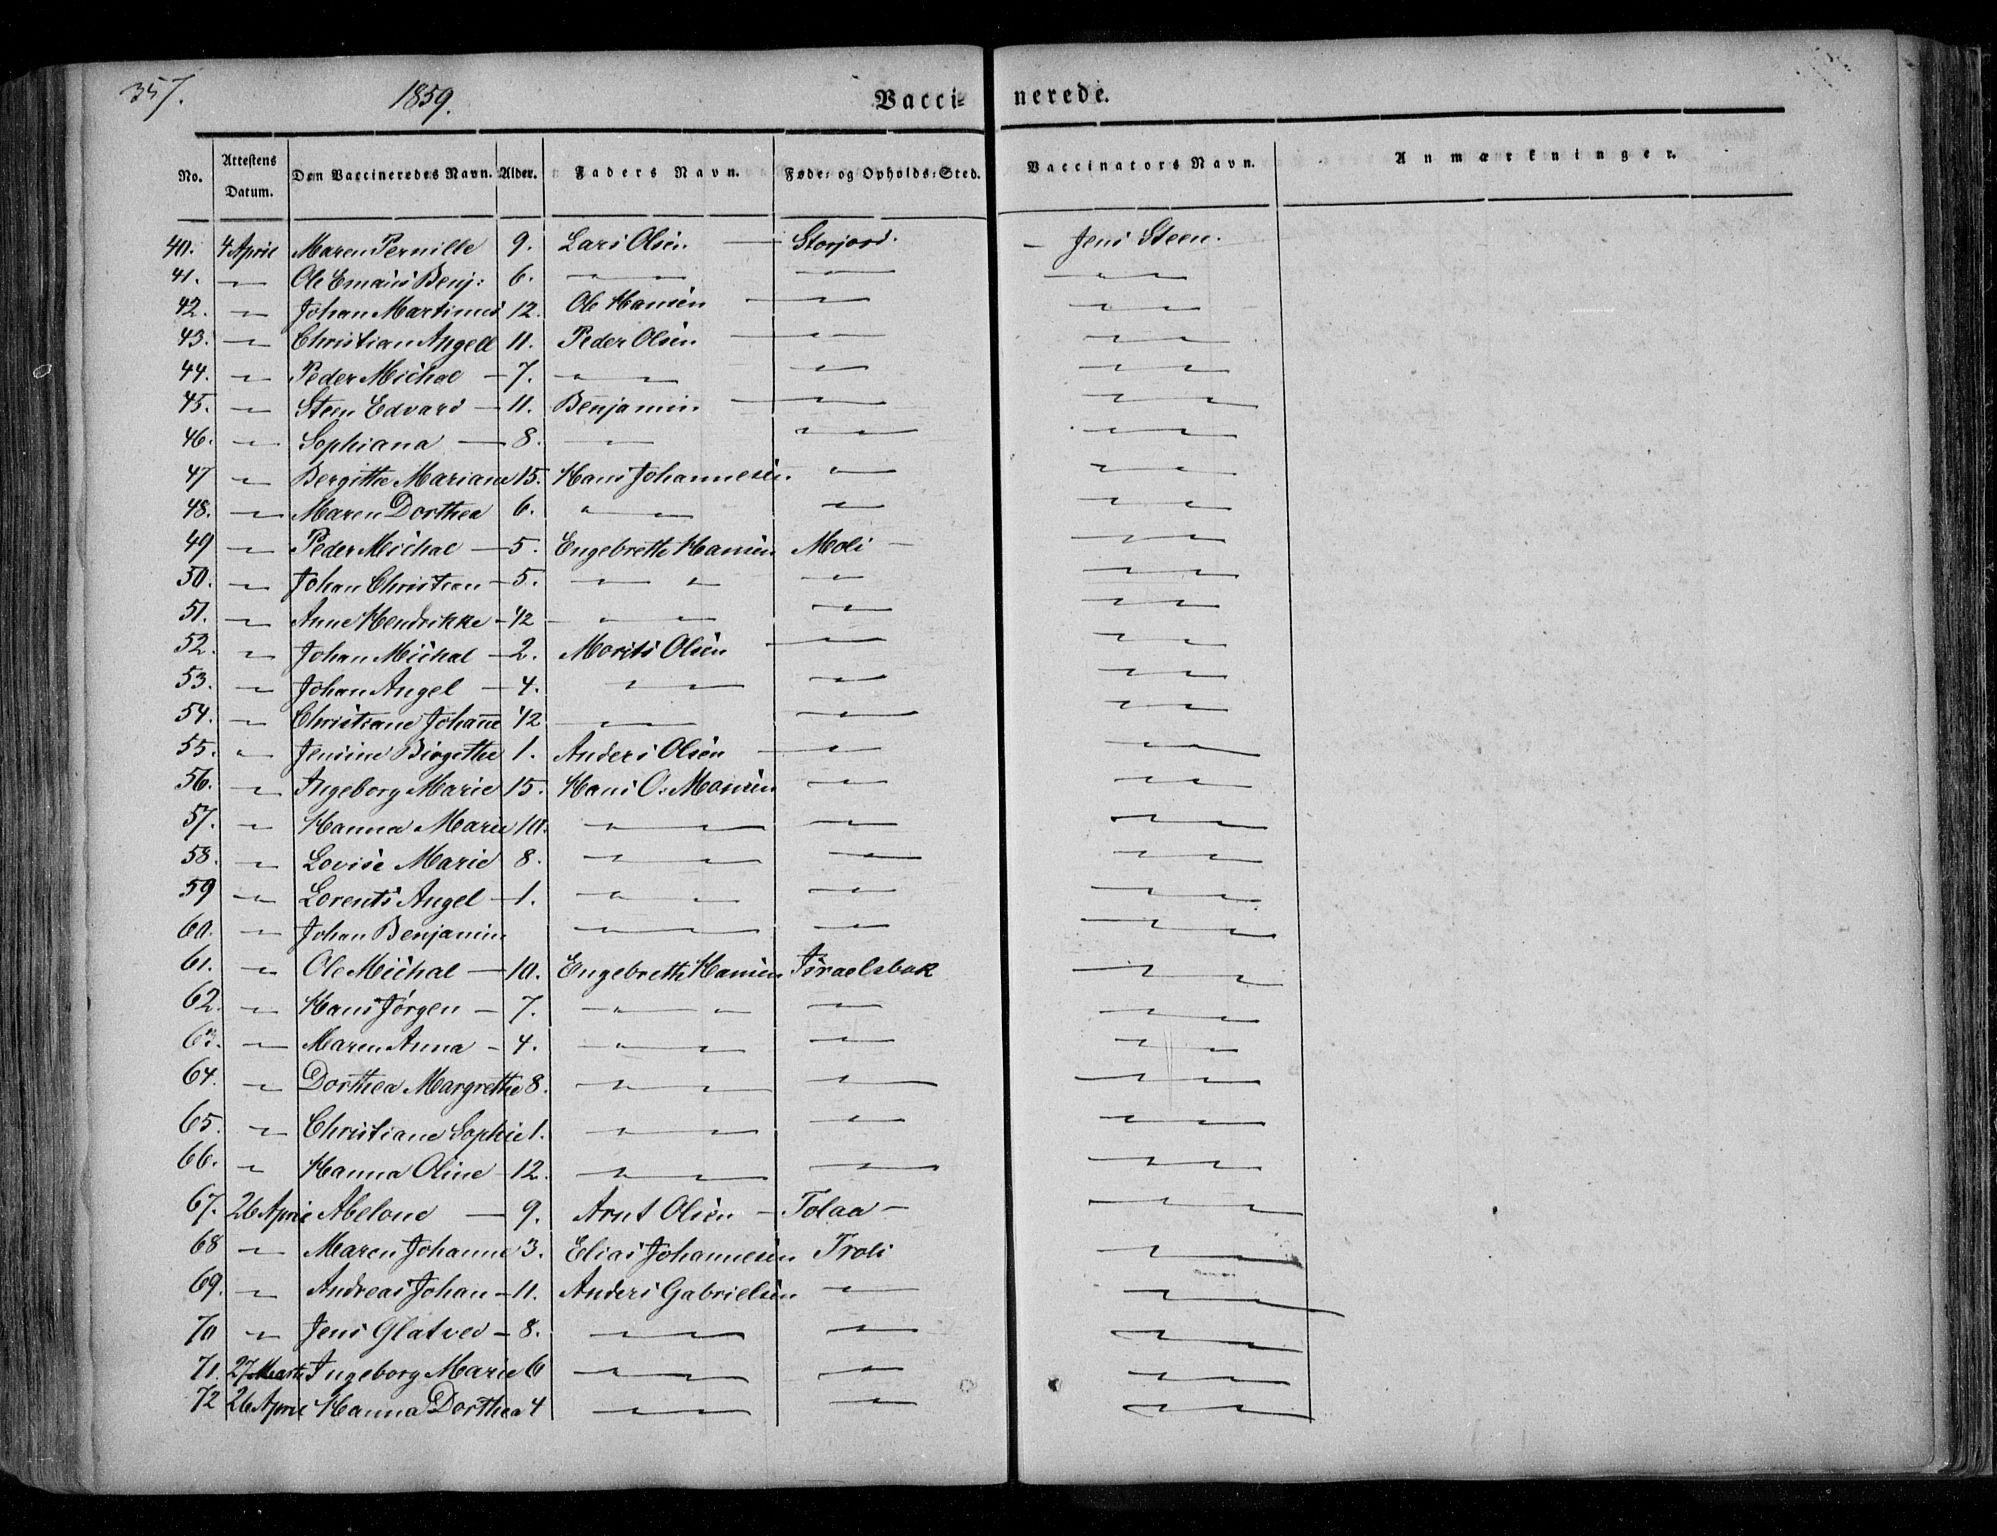 357.
1859.
Vacci- nerede.
No. Attestens Datum. Den Vaccineredes Navn. Alder. Faders Navn. Føde- og Opholds-Sted. Vaccinators Navn. Anmærkninger.
40. 4 April Maren Pernille 9. Lars Olsen — Storjord. — Jens Steen.
41. —"— Ole Emans Benj: 6. —"—"— —"— —"—"—
42. —"— Johan Martinus 12. Ole Hansen —"— —"—"—
43. —"— Christian Angell 11. Peder Olsen —"— —"—"—
44. —"— Peder Michal — 7. —"—"— —"— —"—"—
45. —"— Steen Edvard — 11. Benjamin —"— —"—"—
46. —"— Sophiana — 8. —"— —"—"— —"—"—
47 —"— Bergitte Mariane 15. Hans Johannesen. —"— —"—"—
48. —"— Maren Dorthea 6. —"—"— —"— —"—"—
49 —"— Peder Michal — 5. Engebreth Hansen Moli — —"—"—
50. —"— Johan Christian — 5. —"—"— —"— —"—"—
51. —"— Anne Hendrikke — 1/2 —"—"— —"— —"—"—
52. —"— Johan Michal — 2. Morits Olsen —"— —"—"—
53. —"— Johan Angel — 4. —"—"— —"— —"—"—
54. —"— Christiane Johanne 1/2 —"—"— —"— —"—"—
55. —"— Jensine Birgethe 1. Anders Olsen —"— —"—"—
56. —"— Ingeborg Marie 15. Hans O. Monsen —"— —"—"—
57. —"— Hanna Maria 10. —"—"— —"— —"—"—
58. —"— Lovise Marie 8. —"—"— —"— —"—"—
59 —"— Lorents Angel — 1. —"—"— —"— —"—"—
60. —"— Johan Benjamin —"—"— —"— —"—"—
61. —"— Ole Michal — 10. Engebreth Hansen Israelsbak —"—"—
62. —"— Hans Jørgen — 7. —"—"— —"— —"—"—
63. —"— Maren Anna — 4. —"—"— —"— —"—"—
64. —"— Dorthea Margrethe 8. —"—"— —"— —"—"—
65. —"— Christiane Sophie 1. —"—"— —"— —"—"—
66. —"— Hanna Oline — 12. —"—"— —"— —"—"—
67. 26 April Abelone — 9. Arnt Olsen — Tolaa — —"—"—
68 —"— Maren Johanne 3. Elias Johannesen Troli —"—"—
69. —"— Andreas Johan — 11. Anders Gabrielsen —"— —"—"—
70 —"— Jens Glatved — 8. —"—"— —"— —"—"—
71. 27 Marts Ingeborg Marie 6 —"—"— —"— —"—"—
72 26 April Hanna Dorthea 4 —"—"— —"— —"—"—